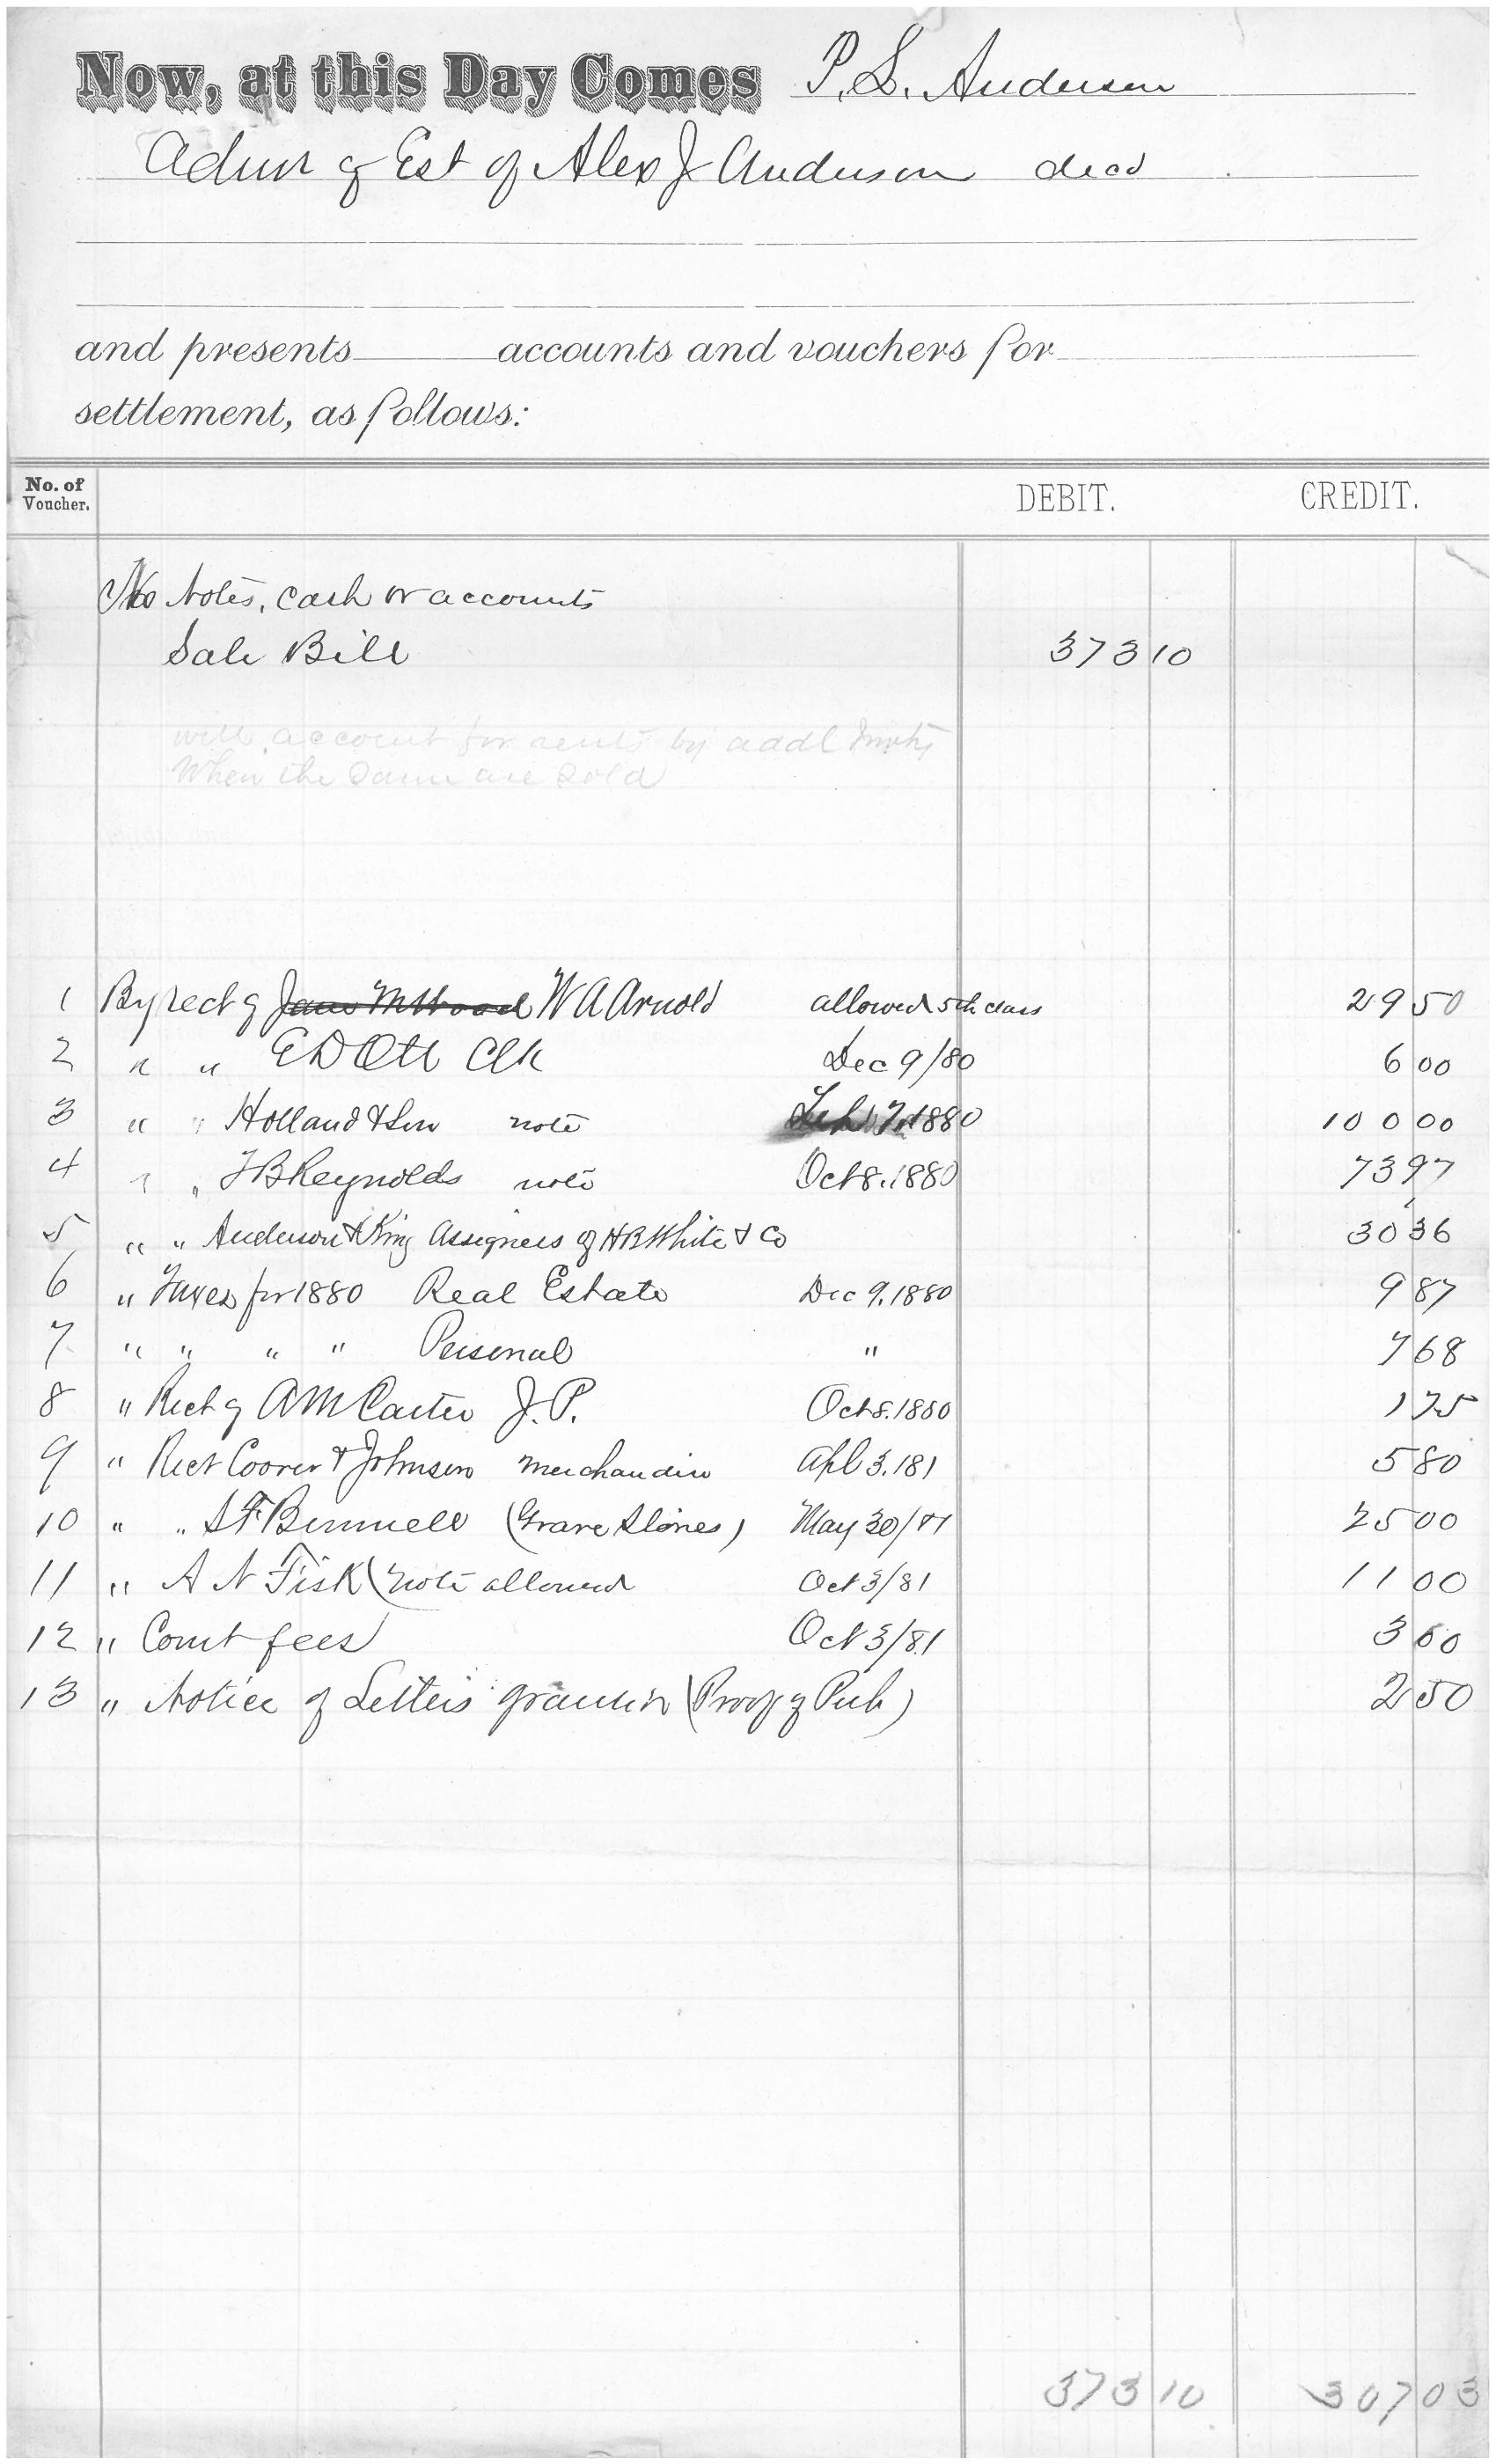 Now, at this Day Comes P. L. Anderson
Admr of Est of Alex J Anderson decd
and presents accounts and vouchers for
settlement, as follows:
No. of Voucher. DEBIT. CREDIT.
No Notes, cash or accounts
Sale Bill 373 10
will account for rents by addl Invty
When the same are sold
1 By rect of W A Arnold allowed 5th class 29 50
2 " " E D Ott Clk Dec 9/80 6 00
3 " " Holland & Son note 1880 100 00
4 " " J B Reynolds note Oct 8. 1880 73 97
5 " " Anderson & King Assignees of H B White & Co 30 36
6 " Taxes for 1880 Real Estate Dec 9. 1880 9 87
7 " " " " Personal " 7 68
8 " Rect of A M Carter J. P. Oct 8. 1880 1 75
9 " Rect Coover & Johnson Merchandise Apl 3. 181 5 80
10 " " S F Bunnell (Grave Stones) May 30/81 25 00
11 " A N Fisk (note allowed Oct 3/81 11 00
12 " Court fees Oct 3/81 3 60
13 " Notice of Letters granted (Proof of Pub) 2 50
373 10 307 03